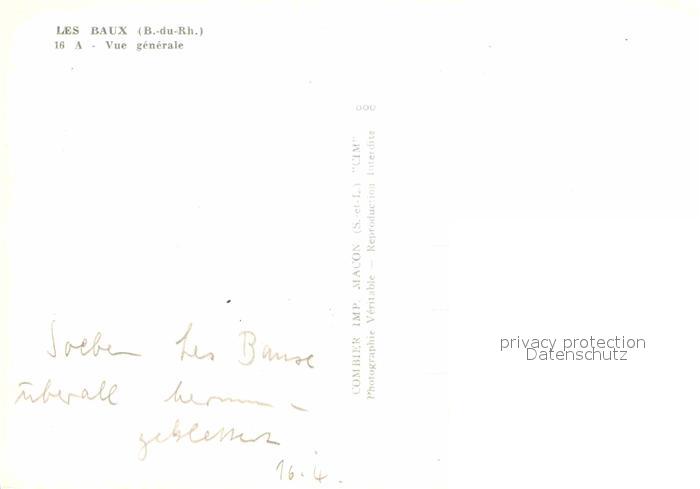 LES BAUX (B.-du-Rh.)
16 A - Vue générale
000
COMBIER IMP. MACON (S.-et-L.) "CIM"
Photographie Véritable — Reproduction Interdite
privacy protection
Datenschutz
Soeben Les Baux
überall herum-
geklettert
16.4.